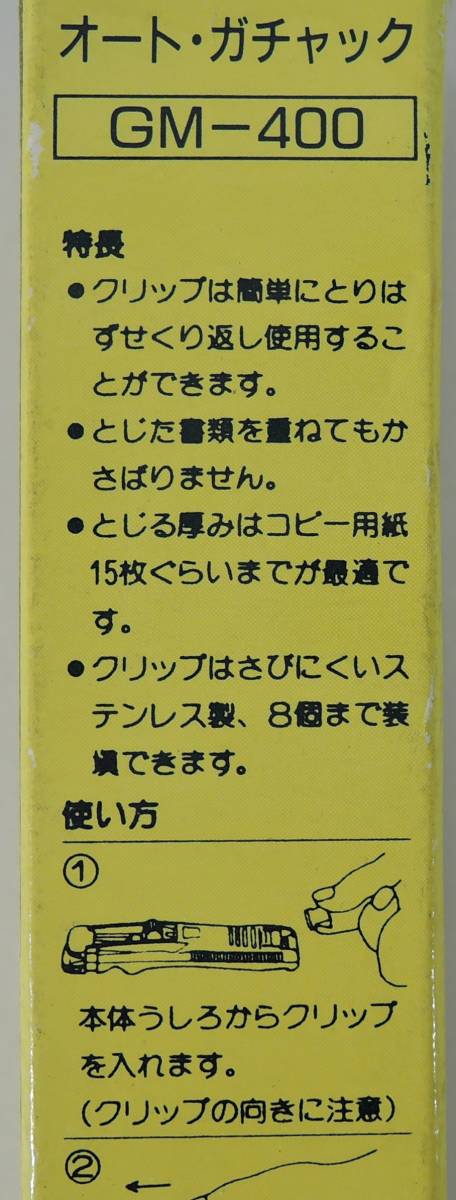 オート・ガチャック
GM−400
特長
●クリップは簡単にとりは
ずせくり返し使用するこ
とができます。
●とじた書類を重ねてもか
さばりません。
●とじる厚みはコピー用紙
15枚ぐらいまでが最適で
す。
●クリップはさびにくいス
テンレス製、8個まで装
填できます。
使い方
①
本体うしろからクリップ
を入れます。
(クリップの向きに注意)
②